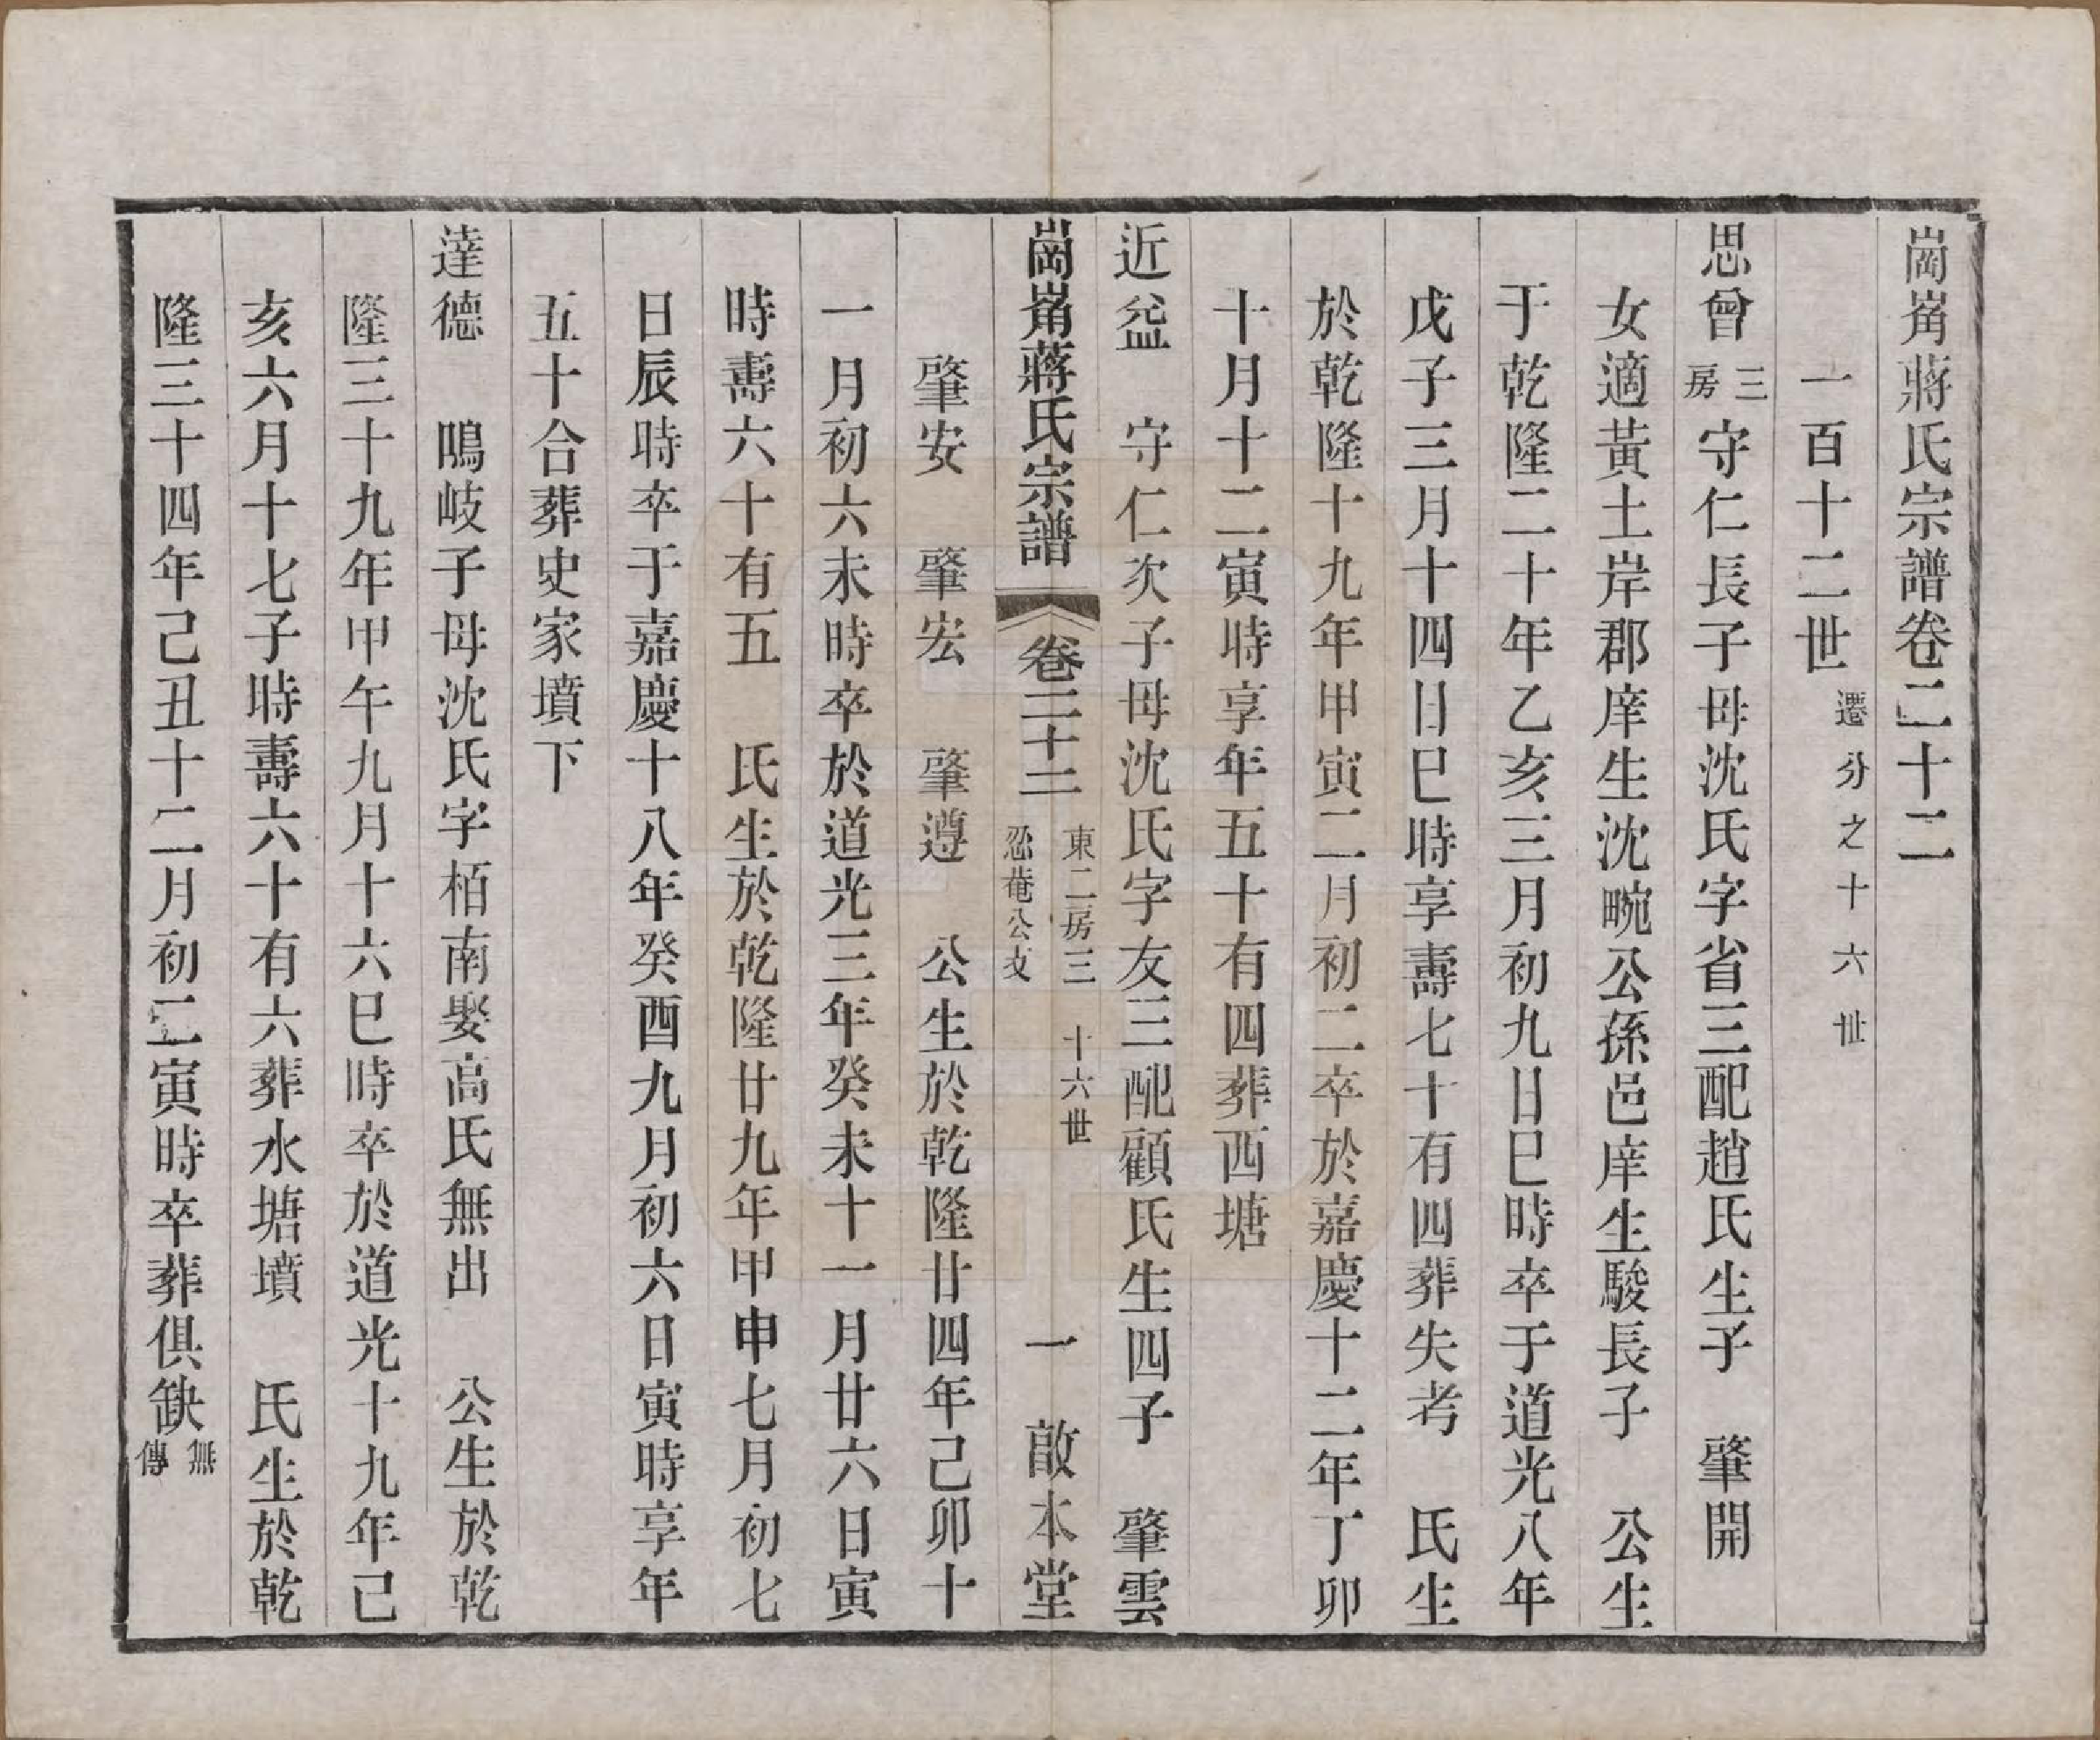 崗崙蔣氏宗譜卷二十二
一百十二世 遷分之十六世
思曾 三房 守仁長子母沈氏字省三配趙氏生子 肇開
女適黃土岸郡庠生沈畹公孫邑庠生駿長子 公生
于乾隆二十年乙亥三月初九日巳時卒于道光八年
戊子三月十四日巳時享壽七十有四葬失考 氏生
於乾隆十九年甲寅二月初二卒於嘉慶十二年丁卯
十月十二寅時享年五十有四葬西塘
近㿽 守仁次子母沈氏字友三配顧氏生四子 肇雲
崗崙蔣氏宗譜 卷二十二 東二房三 忍菴公支 十六世 一 啟本堂
肇安 肇宏 肇遵 公生於乾隆廿四年己卯十
一月初六未時卒於道光三年癸未十一月廿六日寅
時壽六十有五 氏生於乾隆廿九年甲申七月初七
日辰時卒于嘉慶十八年癸酉九月初六日寅時享年
五十合葬史家墳下
達德 鳴岐子母沈氏字栢南娶高氏無出 公生於乾
隆三十九年甲午九月十六巳時卒於道光十九年己
亥六月十七子時壽六十有六葬水塘墳 氏生於乾
隆三十四年己丑十二月初二寅時卒葬俱缺 無傳